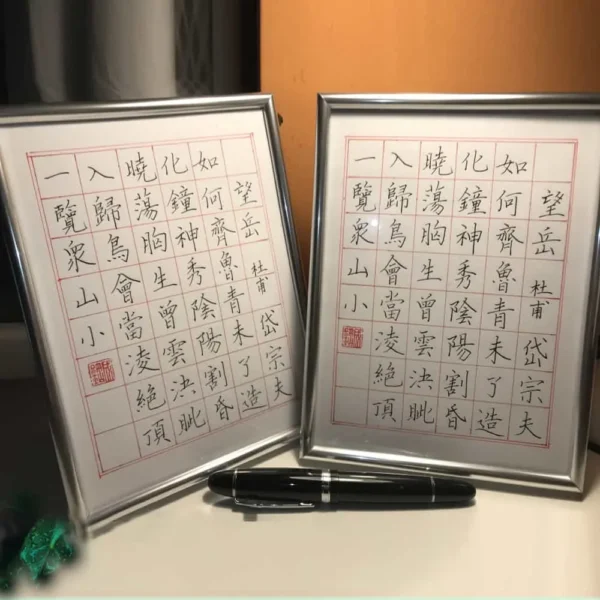 望岳 杜甫 岱宗夫
如何齊魯青未了造
化鐘神秀陰陽割昏
曉蕩胸生曾雲決眦
入歸鳥會當淩絕頂
一覽衆山小
望岳 杜甫 岱宗夫
如何齊魯青未了造
化鐘神秀陰陽割昏
曉蕩胸生曾雲決眦
入歸鳥會當淩絕頂
一覽衆山小